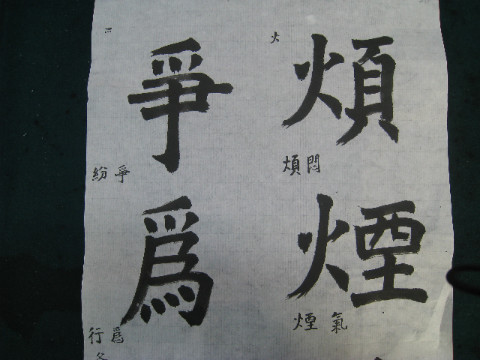 火
煩
煩悶
煙
煙氣
爭
紛爭
爲
行爲